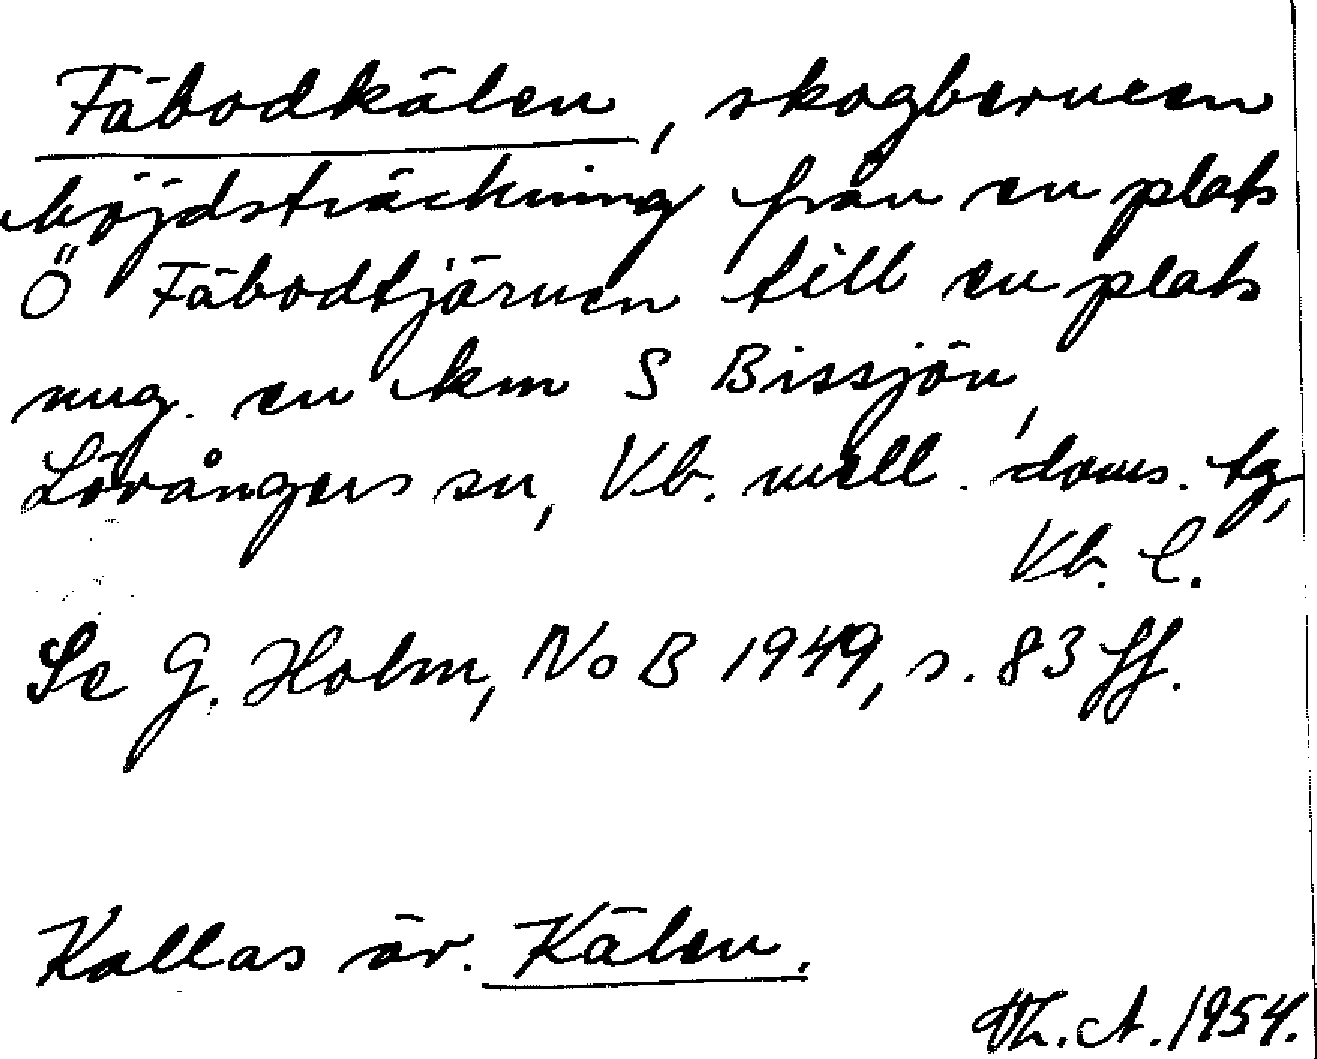 Fäbodkälen, skogbevuxen
höjdsträckning från en plats
Ö Fäbodtjärnen till en plats
ung. en km S Bissjön,
Lövångers sn, Vb. mell. doms. tg,
Vb. l.
Se G. Holm, NoB 1949, s. 83 ff.
Kallas äv. Kälen.
A. 1954.